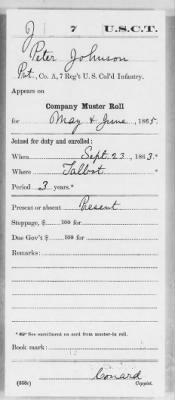 J 7 U.S.C.T.
Peter Johnson
Pvt., Co. A, 7 Reg't U. S. Col'd Infantry.
Appears on
Company Muster Roll
for May & June, 1865.
Joined for duty and enrolled:
When Sept. 23, 1863.*
Where Talbot
Period 3 years.*
Present or absent Present
Stoppage, $ 100 for
Due Gov't $ 100 for
Remarks:
* See enrollment on card from muster-in roll.
Book mark:
Conard
(358c) Copyist.